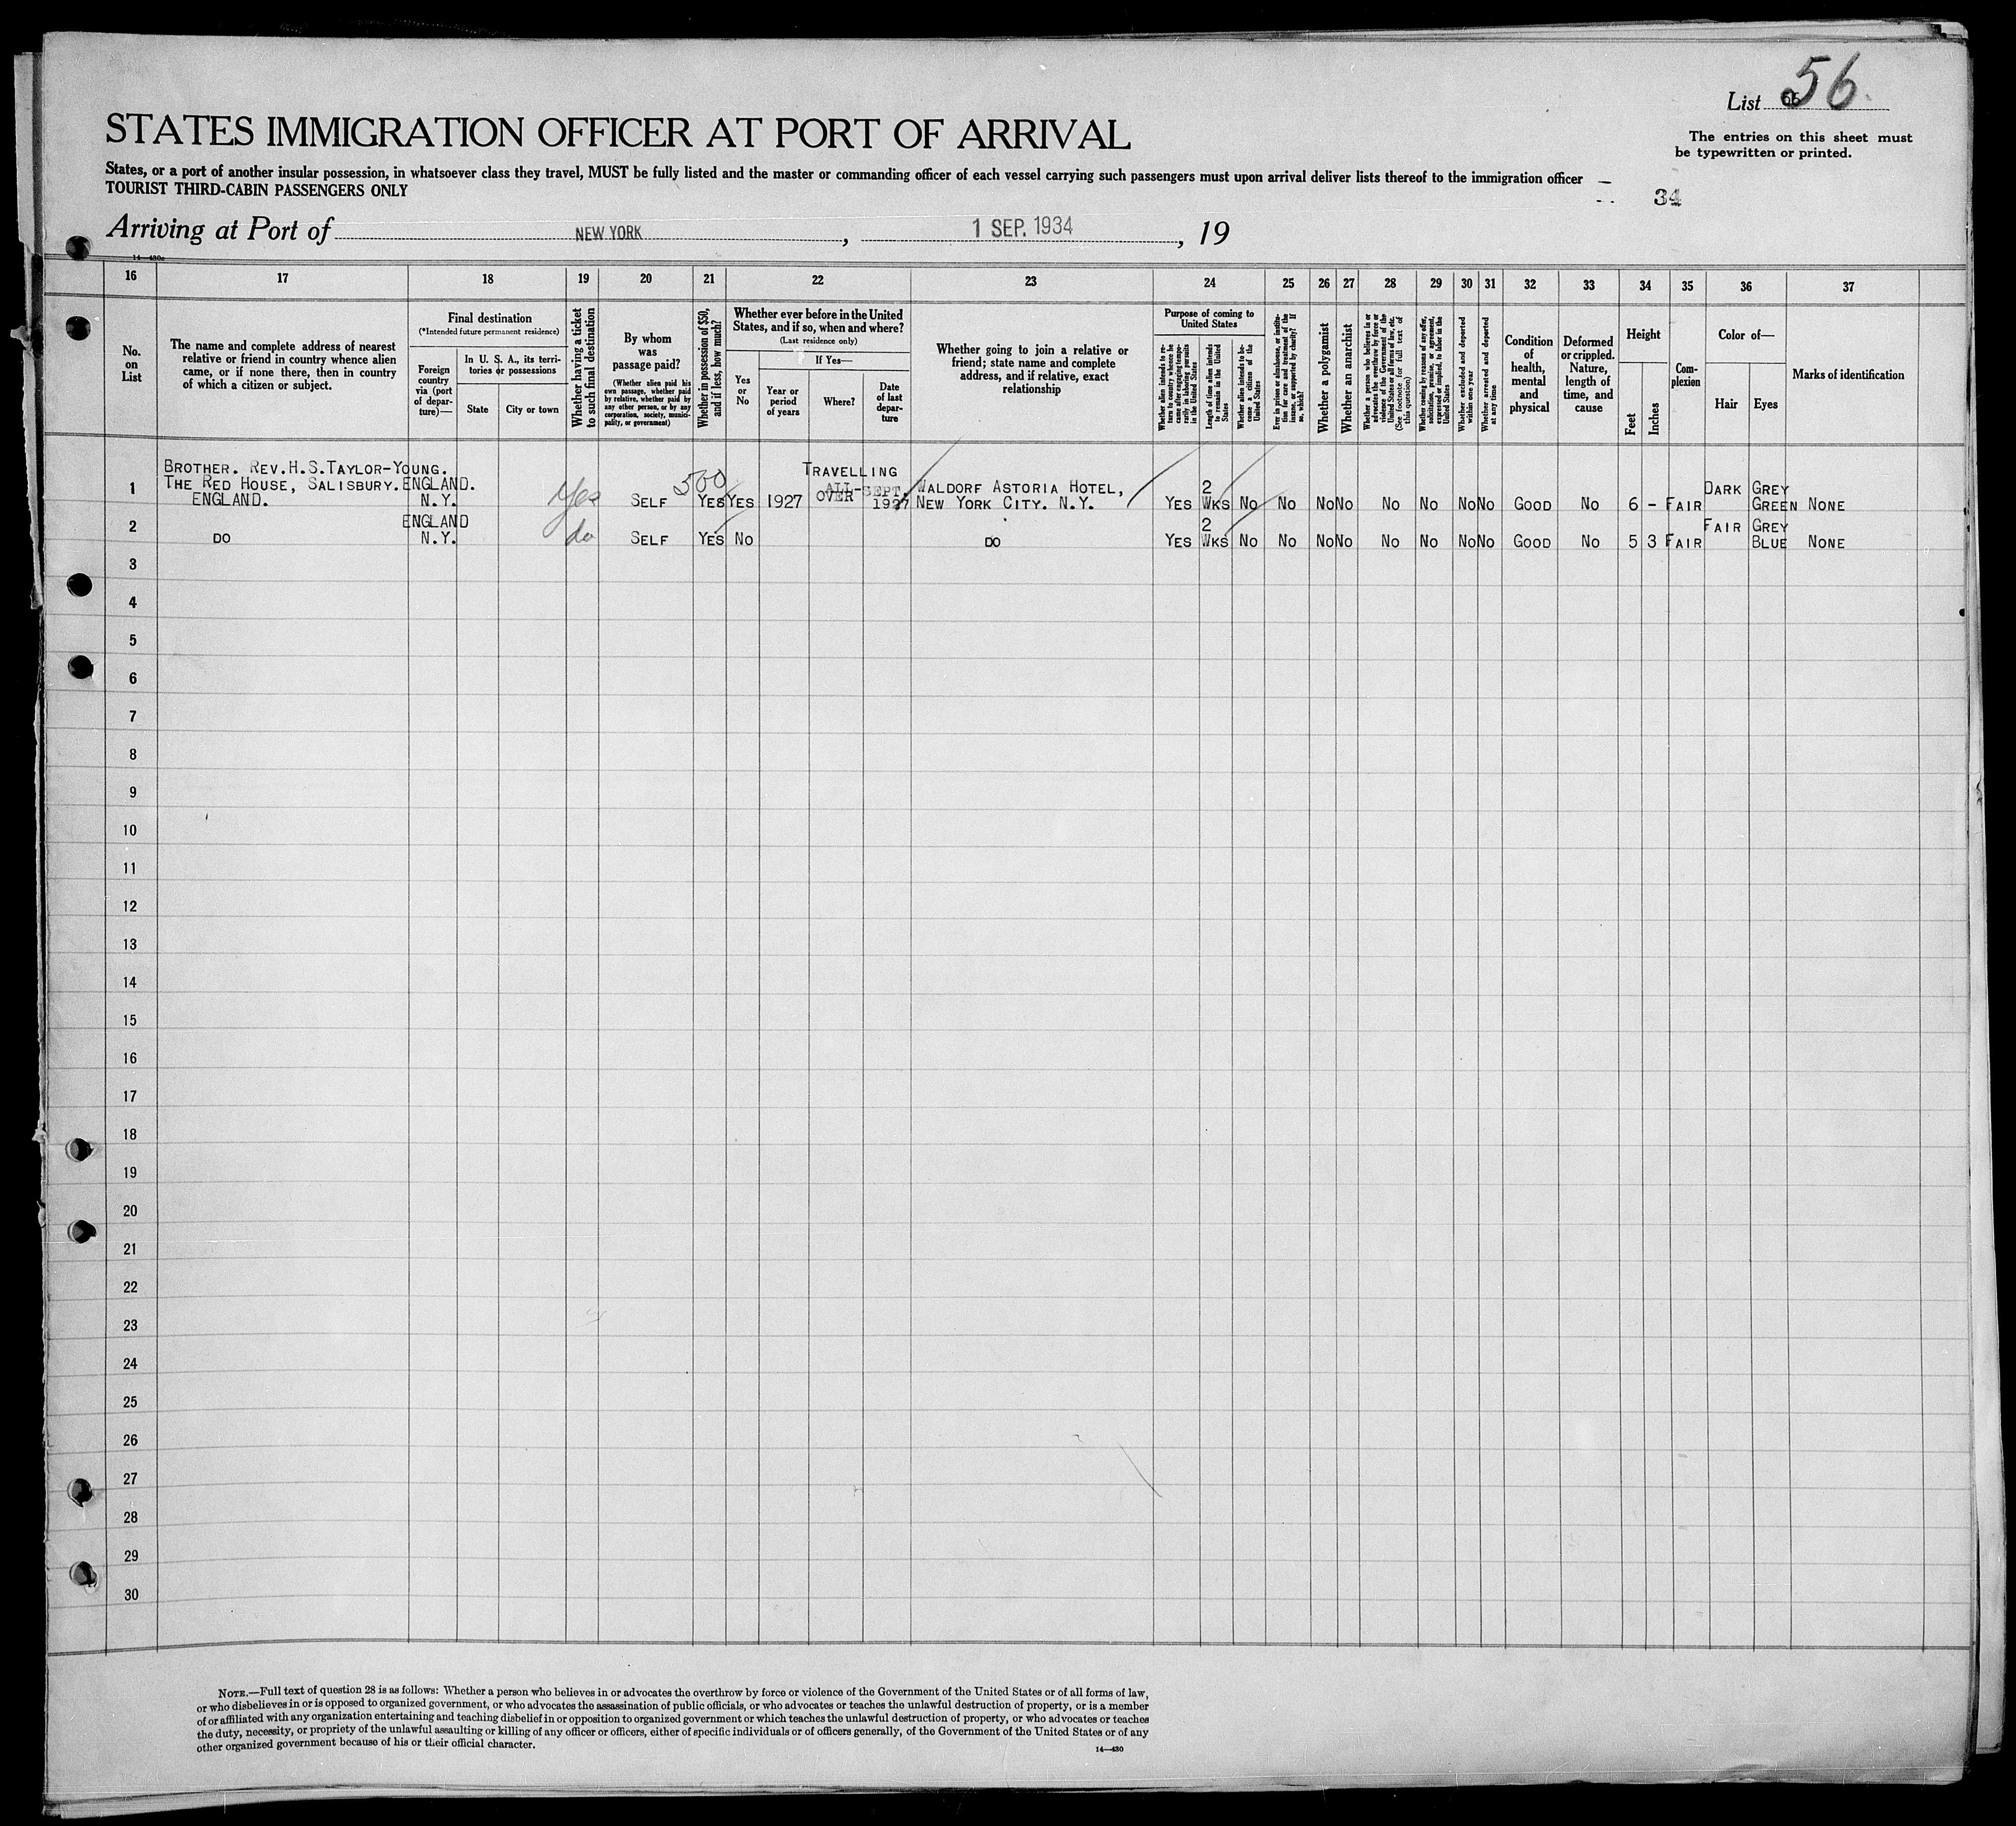 List 56
56
The entries on this sheet must
be typewritten or printed.
STATES IMMIGRATION OFFICER AT PORT OF ARRIVAL
States, or a port of another insular possession, in whatsoever class they travel, MUST be fully listed and the master or commanding officer of each vessel carrying such passengers must upon arrival deliver lists thereof to the immigration officer
TOURIST THIRD-CABIN PASSENGERS ONLY
34
Arriving at Port of NEW YORK, 1 SEP. 1934, 19
14—430c
16 17 18 19 20 21 22 23 24 25 26 27 28 29 30 31 32 33 34 35 36 37
No.
on
List
The name and complete address of nearest
relative or friend in country whence alien
came, or if none there, then in country
of which a citizen or subject.
Final destination
(*Intended future permanent residence)
Foreign
country
via (port
of depar-
ture)—
In U. S. A., its terri-
tories or possessions
State
City or town
Whether having a ticket
to such final destination
By whom
was
passage paid?
(Whether alien paid his
own passage, whether paid
by relative, whether paid by
any other person, or by any
corporation, society, munici-
pality, or government)
Whether in possession of $50,
and if less, how much?
Whether ever before in the United
States, and if so, when and where?
(Last residence only)
Yes
or
No
If Yes—
Year or
period
of years
Where?
Date
of last
depar-
ture
Whether going to join a relative or
friend; state name and complete
address, and if relative, exact
relationship
Purpose of coming to
United States
Whether alien intends to re-
turn to country whence he
came after engaging tempo-
rarily in laboring pursuits
in the United States
Length of time alien intends
to remain in the United
States
Whether alien intends to be-
come a citizen of the
United States
Ever in prison or almshouse, or institu-
tion for care and treatment of the
insane, or supported by charity? If
so, which?
Whether a polygamist
Whether an anarchist
Whether a person who believes in or
advocates the overthrow by force or
violence of the Government of the
United States or all forms of law, etc.
(See footnote for full text of
this question)
Whether coming by reasons of any offer,
solicitation, promise, or agreement,
expressed or implied, to labor in the
United States
Whether excluded and deported
within one year
Whether arrested and deported
at any time
Condition
of
health,
mental
and
physical
Deformed
or crippled.
Nature,
length of
time, and
cause
Height
Feet
Inches
Com-
plexion
Color of—
Hair
Eyes
Marks of identification
BROTHER. REV.H.S.TAYLOR-YOUNG. TRAVELLING
1 THE RED HOUSE, SALISBURY. ENGLAND. 500 ALL- SEPT. WALDORF ASTORIA HOTEL, 2 DARK GREY
ENGLAND. N.Y. Yes SELF YES YES 1927 OVER 1927 NEW YORK CITY. N.Y. YES WKS NO NO NO NO NO NO NO NO GOOD NO 6 - FAIR GREEN NONE
2 ENGLAND 2 FAIR GREY
DO N.Y. do SELF YES NO DO YES WKS NO NO NO NO NO NO NO NO GOOD NO 5 3 FAIR BLUE NONE
3
4
5
6
7
8
9
10
11
12
13
14
15
16
17
18
19
20
21
22
23
24
25
26
27
28
29
30
NOTE.—Full text of question 28 is as follows: Whether a person who believes in or advocates the overthrow by force or violence of the Government of the United States or of all forms of law,
or who disbelieves in or is opposed to organized government, or who advocates the assassination of public officials, or who advocates or teaches the unlawful destruction of property, or is a member
of or affiliated with any organization entertaining and teaching disbelief in or opposition to organized government or which teaches the unlawful destruction of property, or who advocates or teaches
the duty, necessity, or propriety of the unlawful assaulting or killing of any officer or officers, either of specific individuals or of officers generally, of the Government of the United States or of any
other organized government because of his or their official character.
14—430